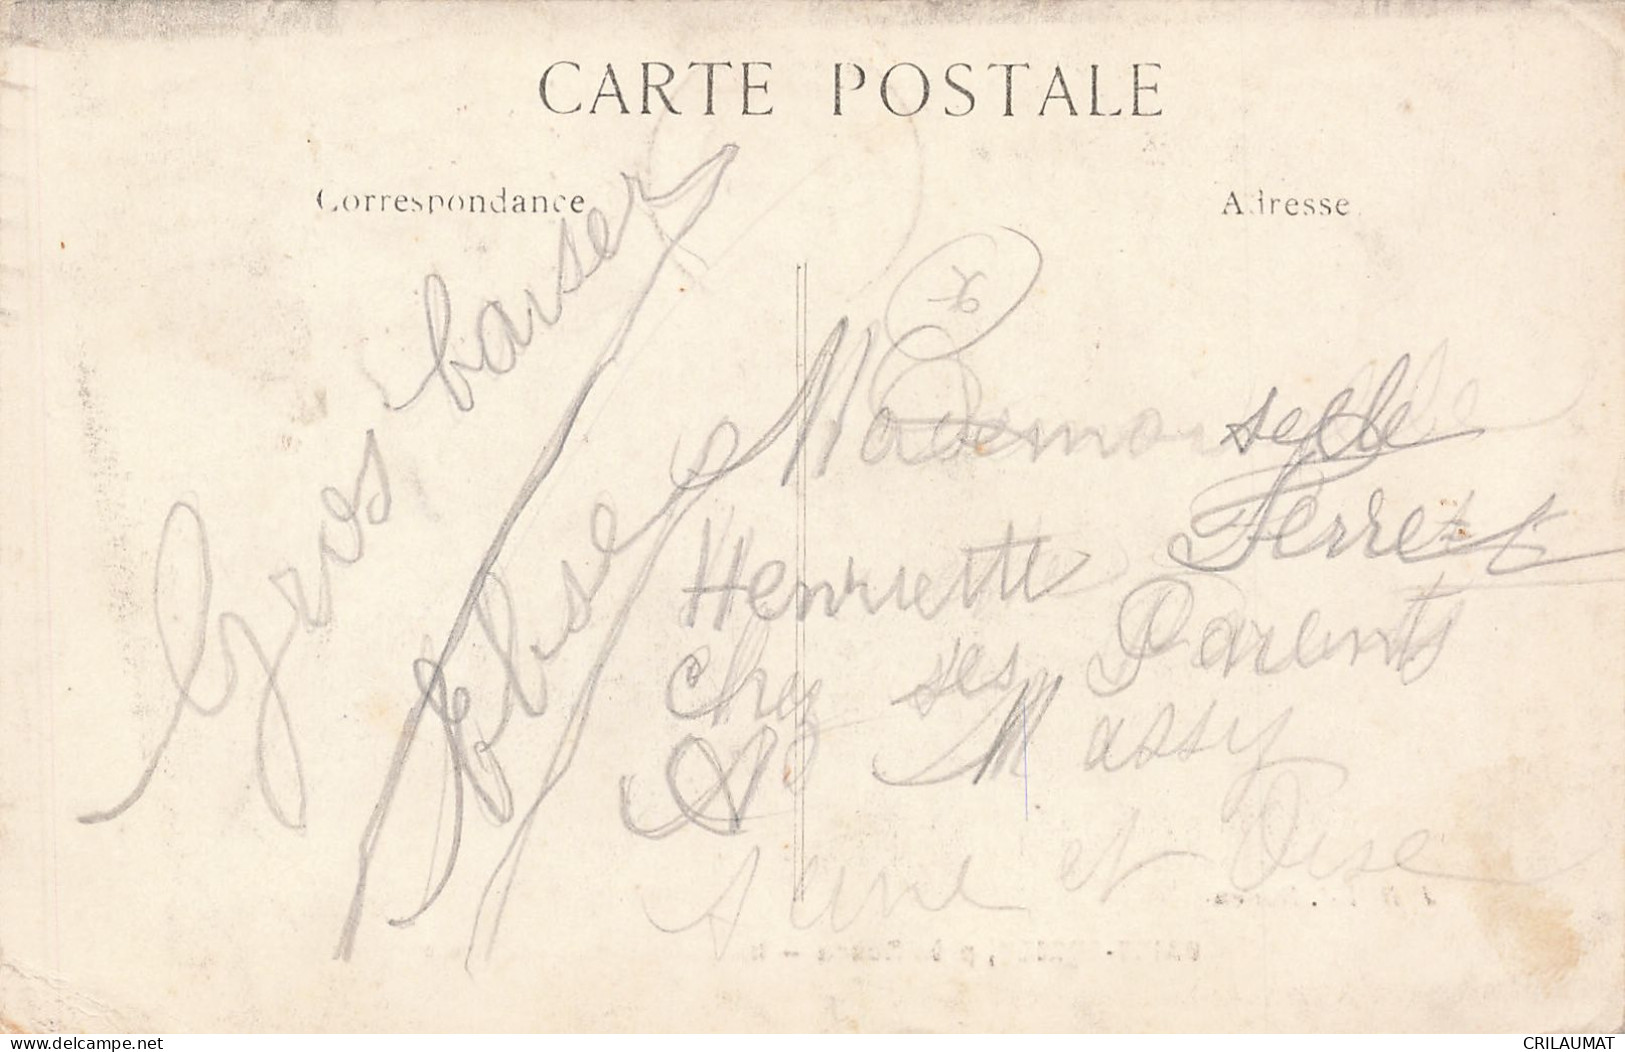 CARTE POSTALE
Correspondance
Adresse
Gros baiser
Mademoiselle
Henriette Ferret
Chez ses Parents
A Massy
Seine et Oise
delcampe.net
CRILAUMAT